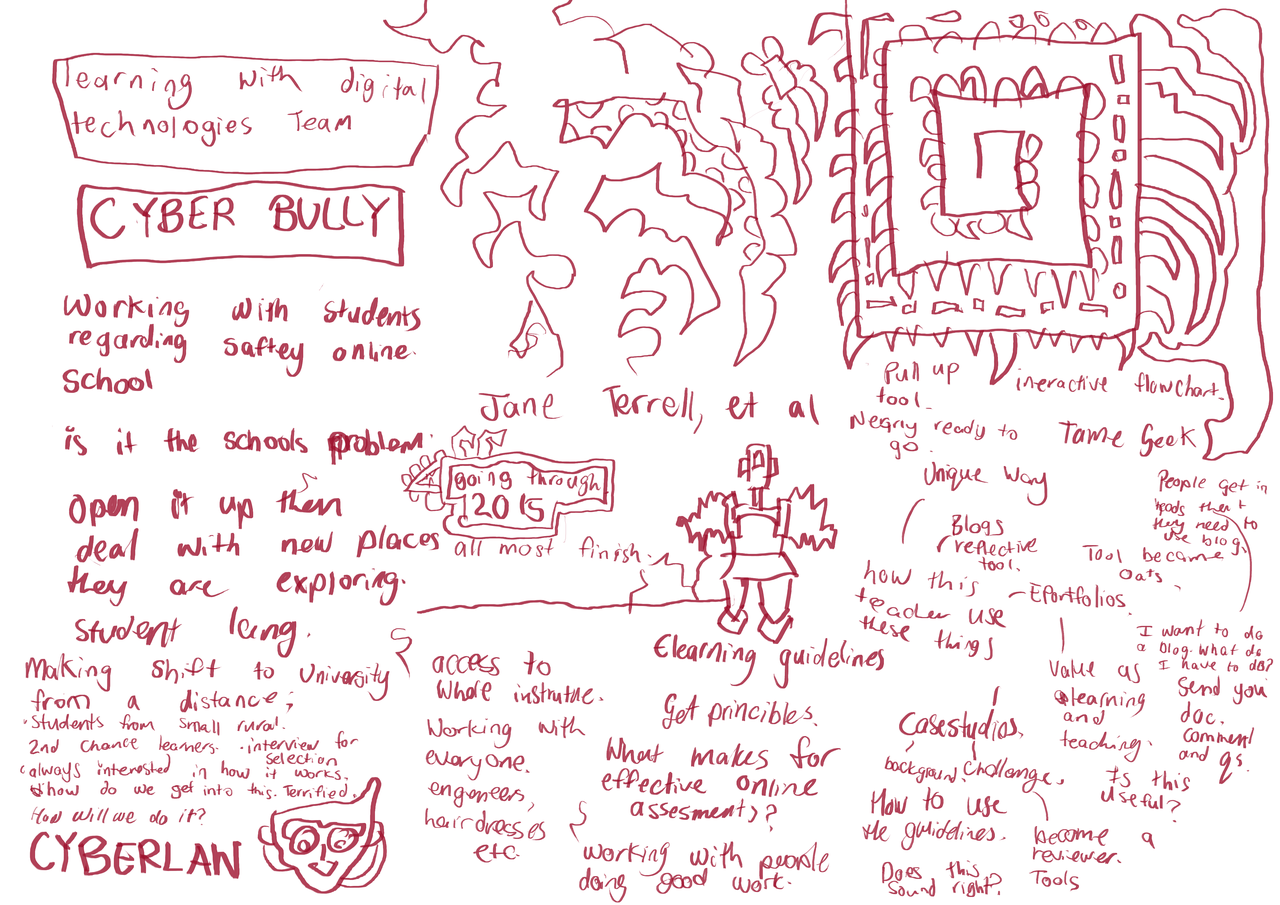 learning with digital
technologies Team
CYBER BULLY
Working with students
regarding saftey online.
School
is it the schools problem.
open it up then
deal with new places
they are exploring.
student leing.
Making shift to University
from a distance;
Students from small rural.
2nd chance learners. interview for
selection
always interested in how it works.
how do we get into this. Terrified.
How will we do it?
CYBERLAN
Jane Terrell, et al
going through
2015
all most finish.
access to
whole institute.
Working with
everyone.
engineers,
hairdresses
etc.
Elearning guidelines
Get princibles.
What makes for
effective online
assesments?
Working with people
doing good work.
Pull up
tool.
ready to
go.
ineractive flowchart.
Tame Geek
Unique way
Blogs
reflective
tool.
how this
teacher use
these things
Eportfolios.
People get in
heads that
they need to
use blog.
Tool became
oats.
I want to do
a blog. what do
I have to do?
Send you
doc.
comment
and qs.
Value as
learning
and
teaching.
Is this
useful?
Casestudios.
background. Challenge.
How to use
the guidelines.
Does this
sound right?
become a
reviewer.
Tools